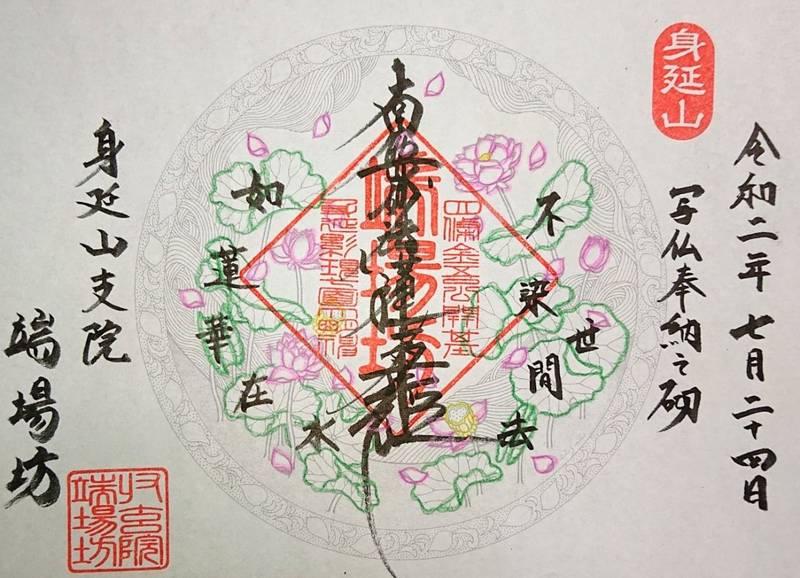 令和二年 七月二十四日
身延山
写仏奉納之砌
不染世間法
南無妙法蓮華経
端場坊
如蓮華在水
身延山支院
端場坊
収玄院
端場坊